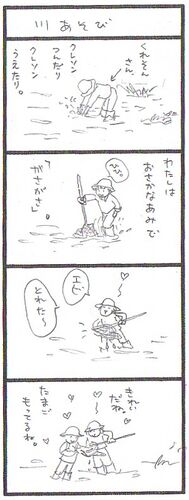 川あそび
くれそん
さん。
クレソン
つんだり
クレソン
うえたり。
わたしは
おさかなあみで
「がさがさ」。
エビ
とれた〜
きれい
だね。
たまご
もってるね。